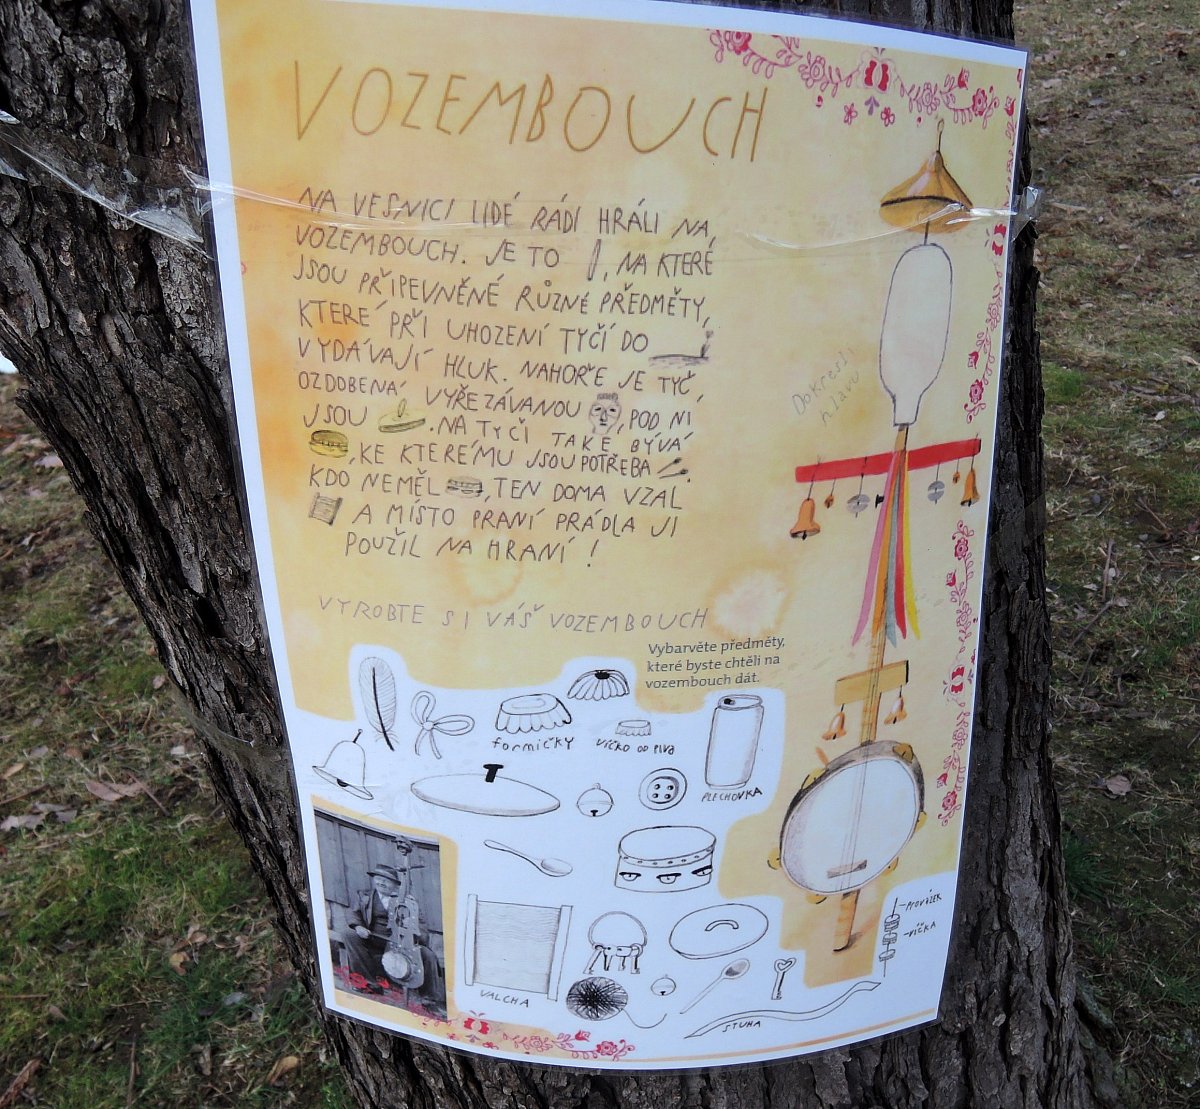 VOZEMBOUCH
NA VESNICI LIDÉ RÁDI HRÁLI NA
VOZEMBOUCH. JE TO , NA KTERÉ
JSOU PŘIPEVNĚNÉ RŮZNÉ PŘEDMĚTY,
KTERÉ PŘI UHOZENÍ TYČÍ DO
VYDÁVAJÍ HLUK. NAHOŘE JE TYČ
OZDOBENÁ VYŘEZÁVANOU , POD NÍ
JSOU . NA TYČI TAKÉ BÝVÁ
, KE KTERÉMU JSOU POTŘEBA .
KDO NEMĚL , TEN DOMA VZAL
A MÍSTO PRANÍ PRÁDLA JI
POUŽIL NA HRANÍ !
Dokresli
hlavu
VYROBTE SI VÁŠ VOZEMBOUCH
Vybarvěte předměty,
které byste chtěli na
vozembouch dát.
formičky
VÍČKO OD PIVA
PLECHOVKA
PROVÁZEK
VÍČKA
VALCHA
STUHA